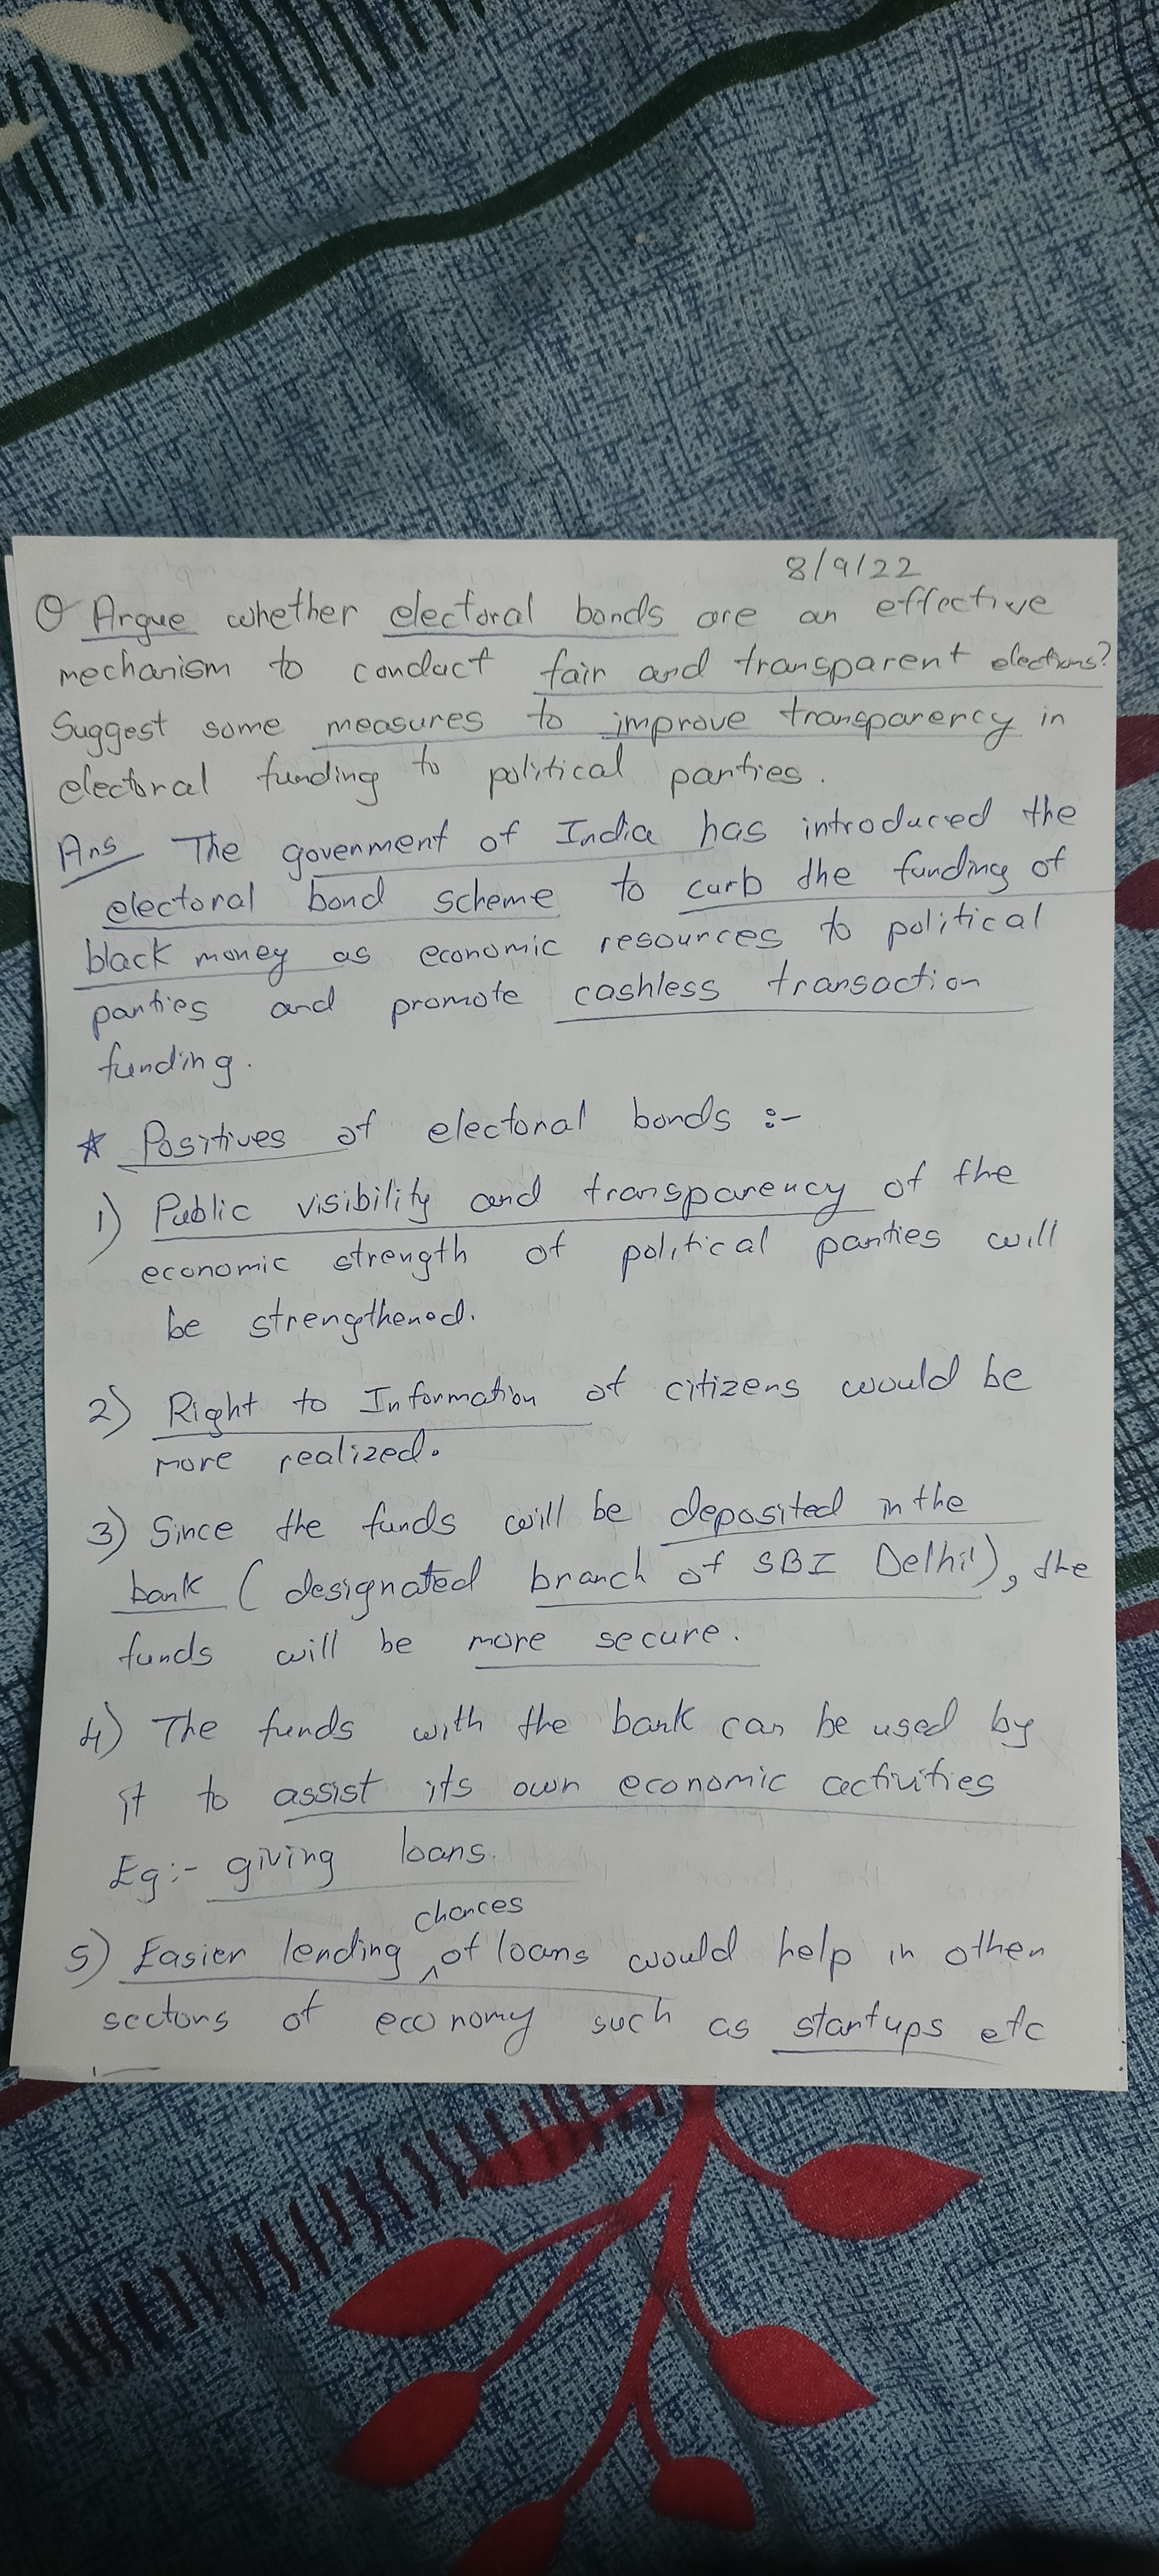 8/9/22
Q Argue whether electoral bonds are an effective
mechanism to conduct fair and transparent elections?
Suggest some measures to improve transparency in
electoral funding to political parties.
Ans The govenment of India has introduced the
electoral bond scheme to curb the funding of
black money as economic resources to political
parties and promote cashless transaction
funding.
* Positives of electoral bonds :-
1) Public visibility and transparency of the
economic strength of political parties will
be strengthened.
2) Right to Information of citizens would be
more realized.
3) Since the funds will be deposited in the
bank (designated branch of SBI Delhi), the
funds will be more secure.
4) The funds with the bank can be used by
it to assist its own economic activities
Eg:- giving loans.
chances
5) Easier lending ^ of loans would help in other
sectors of economy such as startups etc